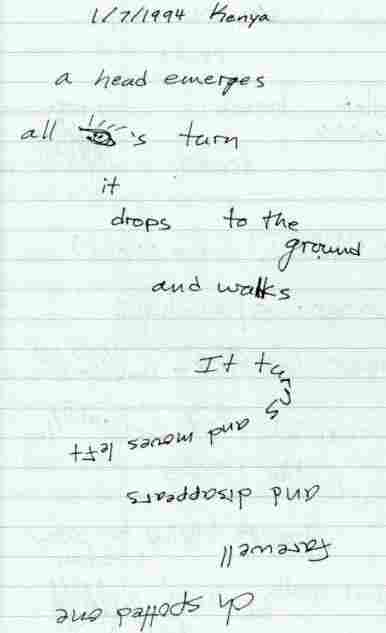 1/7/1994 Kenya
a head emerges
all 👁's turn
it
drops to the
ground
and walks
It turns
and moves left
and disappears
farewell
oh spotted one